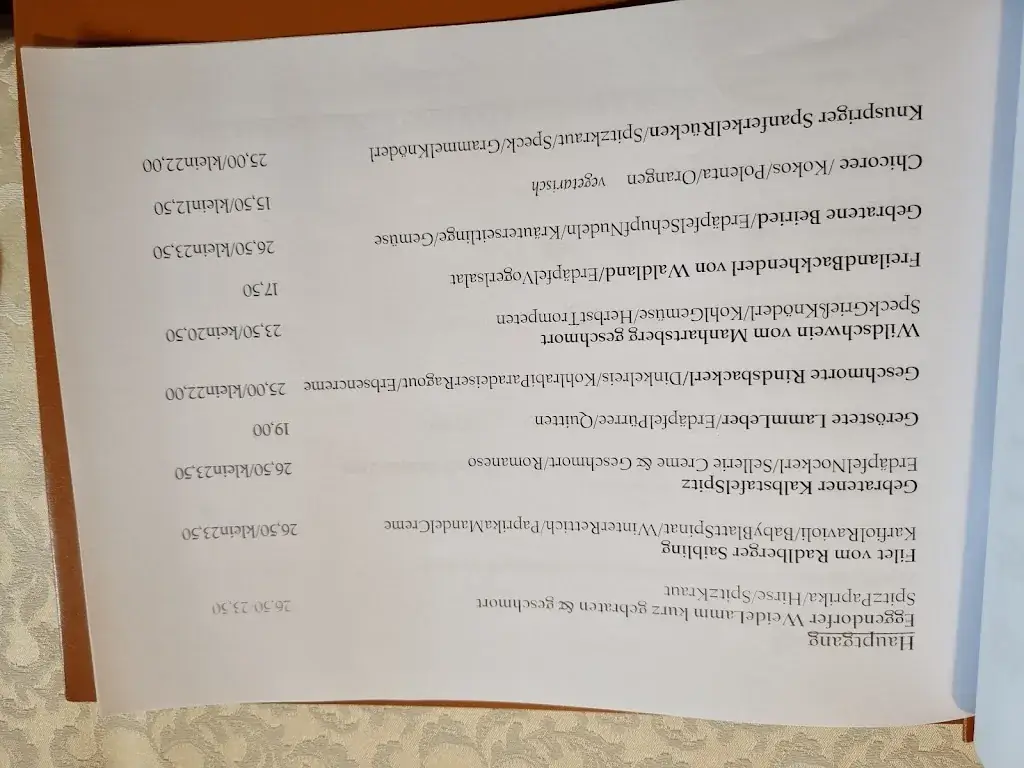 Hauptgang
Eggendorfer WeideLamm kurz gebraten & geschmort
SpitzPaprika/Hirse/SpitzKraut 26,50 23,50
Filet vom Radlberger Saibling
KarfiolRavioli/BabyBlattSpinat/WinterRettich/PaprikaMandelCreme 26,50/klein23,50
Gebratener KalbstafelSpitz
ErdäpfelNockerl/Sellerie Creme & Geschmort/Romaneso 26,50/klein23,50
Geröstete LammLeber/ErdäpfelPürree/Quitten 19,00
Geschmorte Rindsbackerl/Dinkelreis/KohlrabiParadeiserRagout/Erbsencreme 25,00/klein22,00
Wildschwein vom Manhartsberg geschmort
SpeckGrießKnöderl/KohlGemüse/HerbstTrompeten 23,50/kein20,50
FreilandBackhenderl von Waldland/ErdäpfelVogerlsalat 17,50
Gebratene Beiried/ErdäpfelSchupfNudeln/Kräuterseitlinge/Gemüse 26,50/klein23,50
Chicoree /Kokos/Polenta/Orangen vegetarisch 15,50/klein12,50
Knuspriger SpanferkelRücken/Spitzkraut/Speck/GrammelKnöderl 25,00/klein22,00